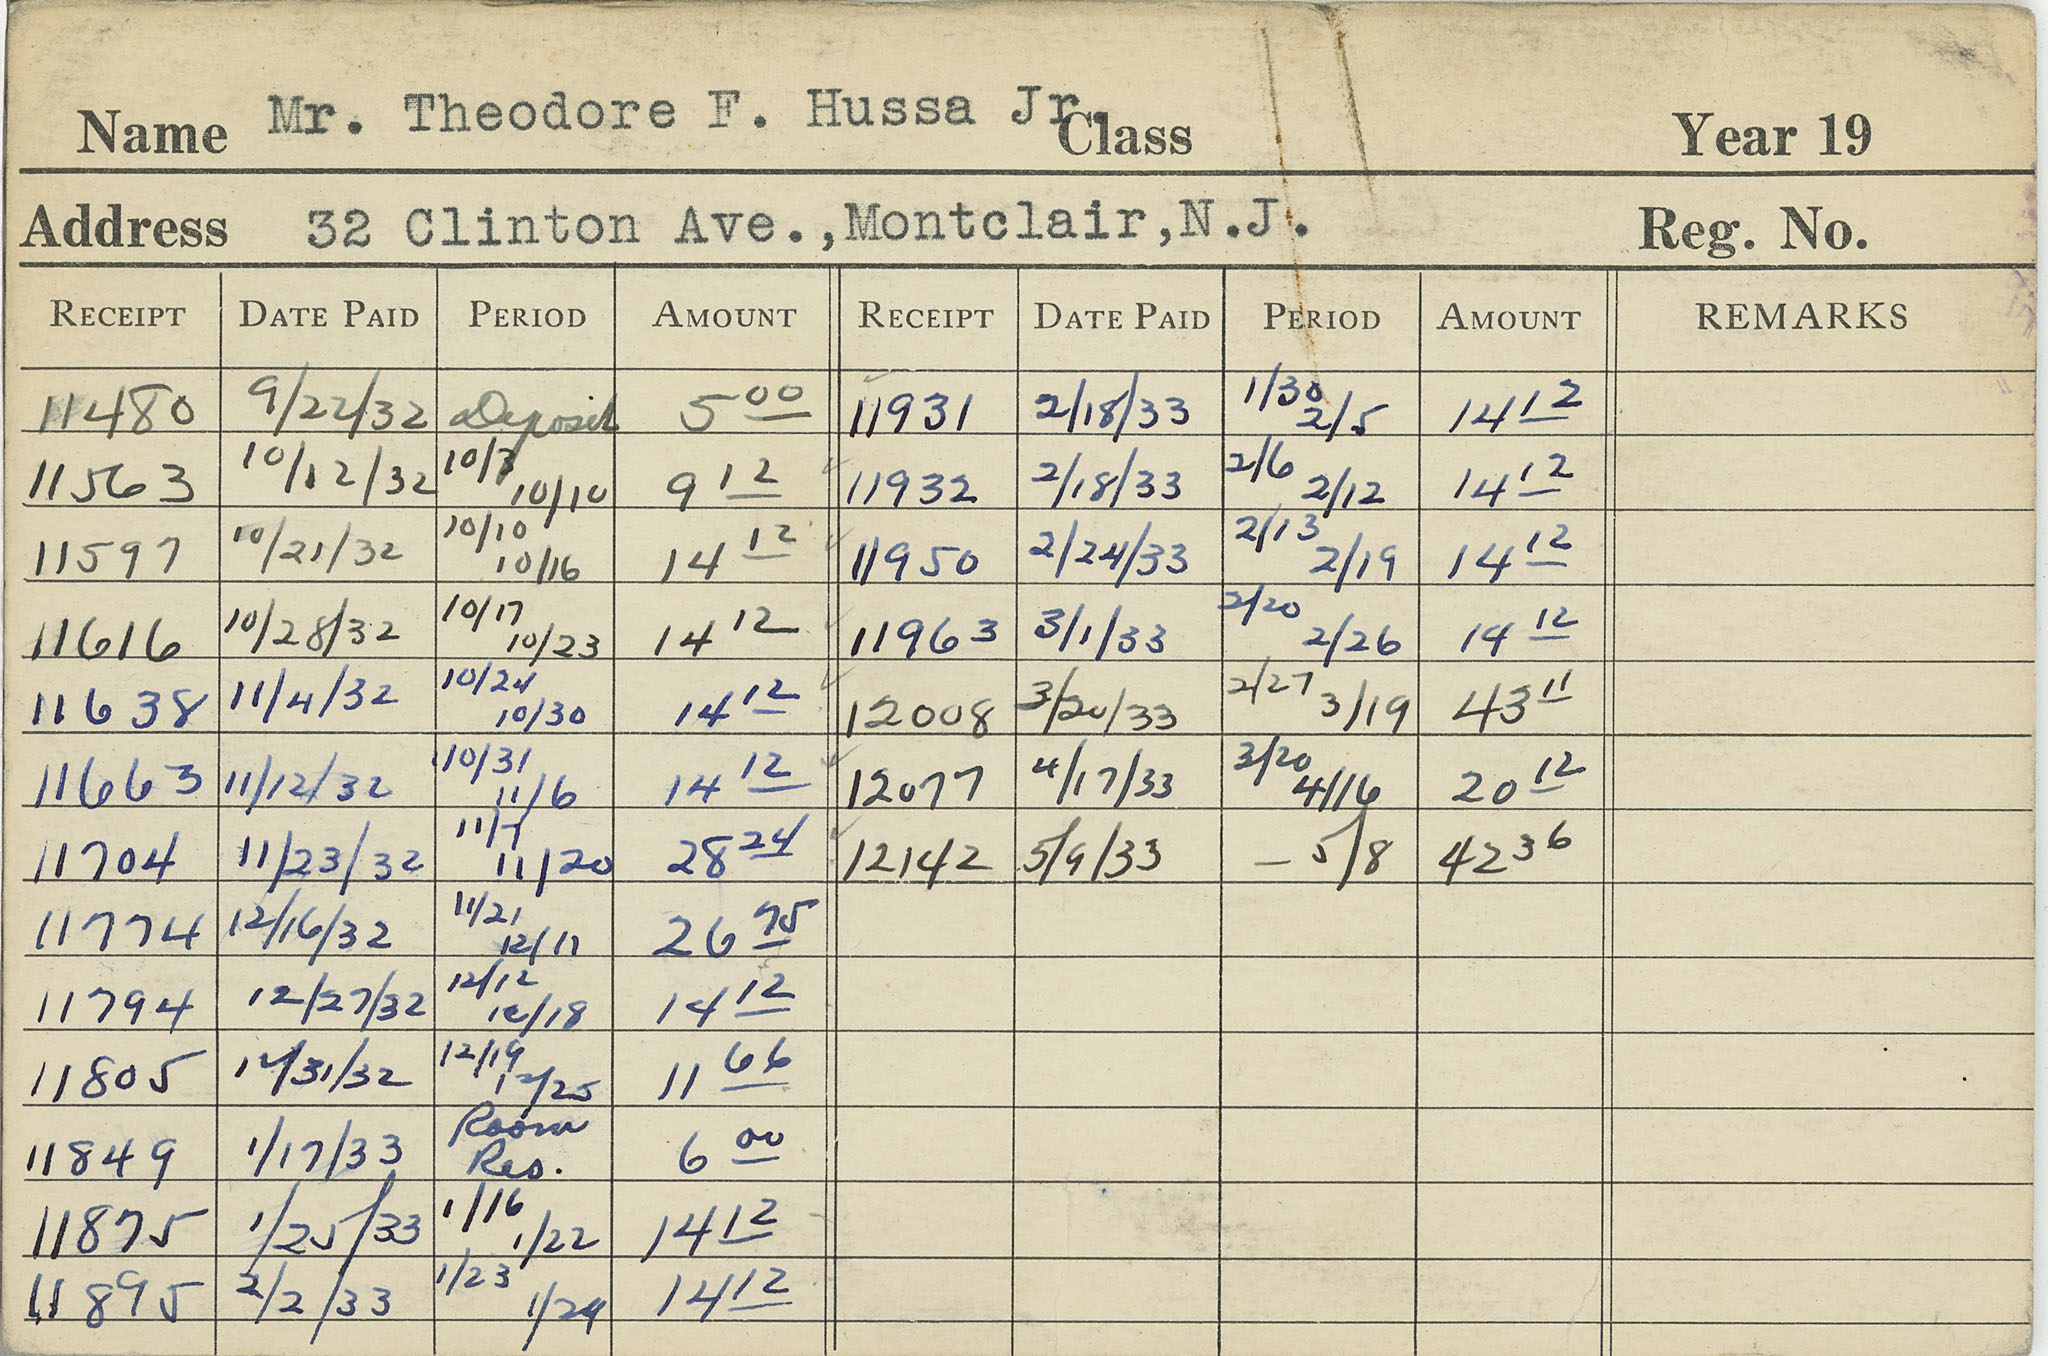 Name Mr. Theodore F. Hussa Jr. Class Year 19
Address 32 Clinton Ave.,Montclair,N.J. Reg. No.
RECEIPT DATE PAID PERIOD AMOUNT RECEIPT DATE PAID PERIOD AMOUNT REMARKS
11480 9/22/32 Deposit 5 00 11931 2/18/33 1/30 2/5 14 12
11563 10/12/32 10/3 10/10 9 12 11932 2/18/33 2/6 2/12 14 12
11597 10/21/32 10/10 10/16 14 12 11950 2/24/33 2/13 2/19 14 12
11616 10/28/32 10/17 10/23 14 12 11963 3/1/33 2/20 2/26 14 12
11638 11/4/32 10/24 10/30 14 12 12008 3/20/33 2/27 3/19 43 11
11663 11/12/32 10/31 11/6 14 12 12077 4/17/33 3/20 4/16 20 12
11704 11/23/32 11/7 11/20 28 24 12142 5/9/33 – 5/8 42 36
11774 12/16/32 11/21 12/11 26 75
11794 12/27/32 12/12 12/18 14 12
11805 12/31/32 12/19 12/25 11 66
11849 1/17/33 Room Res. 6 00
11875 1/25/33 1/16 1/22 14 12
11895 2/2/33 1/23 1/29 14 12